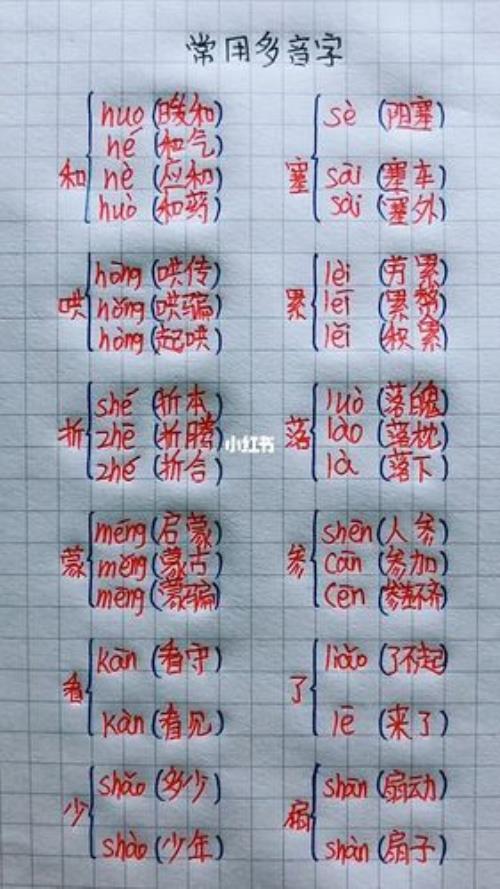 常用多音字
和
huo (暖和)
hé (和气)
hè (应和)
huò (和药)
塞
sè (阻塞)
sāi (塞车)
sài (塞外)
哄
hōng (哄传)
hǒng (哄骗)
hòng (起哄)
累
lèi (劳累)
léi (累赘)
lěi (积累)
折
shé (折本)
zhē (折腾)
zhé (折合)
落
luò (落魄)
lào (落枕)
là (落下)
小红书
蒙
méng (启蒙)
měng (蒙古)
mēng (蒙骗)
参
shēn (人参)
cān (参加)
cēn (参差不齐)
看
kān (看守)
kàn (看见)
了
liǎo (了不起)
lē (来了)
少
shǎo (多少)
shào (少年)
扇
shān (扇动)
shàn (扇子)